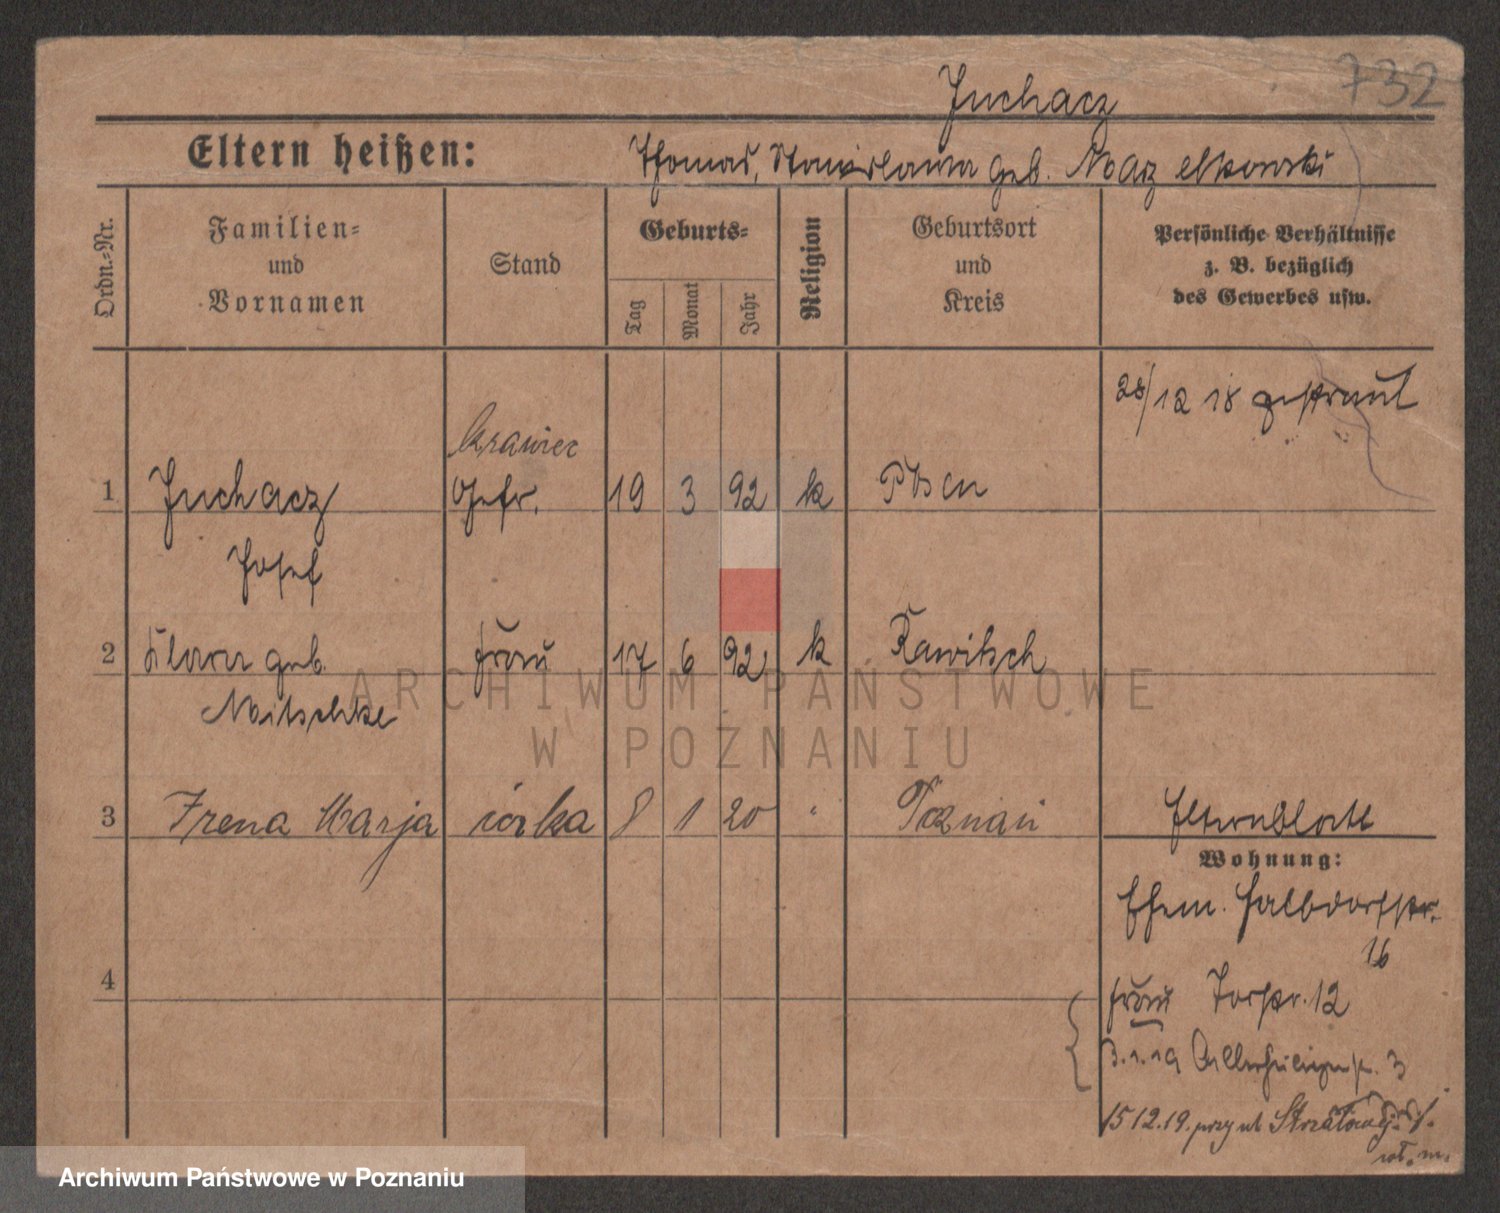 732
Juchacz
Eltern heißen: Thomas, Stanislawa geb. Maz
Ordn.-Nr.
Familien-
und
Vornamen
Stand
Geburts-
Tag
Monat
Jahr
Religion
Geburtsort
und
Kreis
Persönliche Verhältnisse
z. B. bezüglich
des Gewerbes usw.
28/12 18 getraut
krawiec
1 Juchacz Gefr. 19 3 92 k Posen
Josef
2 Klara geb. Frau 17 6 92 k Rawitsch
Nitschke
3 Irena Marja córka 8 1 20 " Poznań Elternblatt
Wohnung:
Ehem. Halbdorfstr.
16
4
Frau Torstr. 12
3.1.19 Allerheiligenstr. 3
15 12.19. przy ul
ARCHIWUM PAŃSTWOWE
W POZNANIU
Archiwum Państwowe w Poznaniu